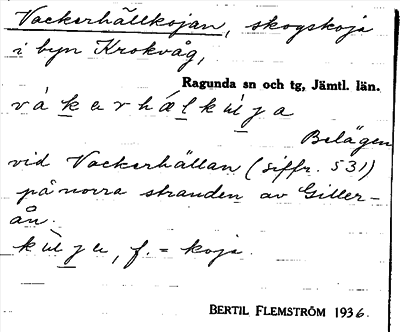 Vackerhällkojan, skogskoja
i byn Krokvåg,
Ragunda sn och tg, Jämtl. län.
Belägen
vid Vackerhällan (siffr. 531)
på norra stranden av Giller-
ån.
f. = koja.
BERTIL FLEMSTRÖM 1936.